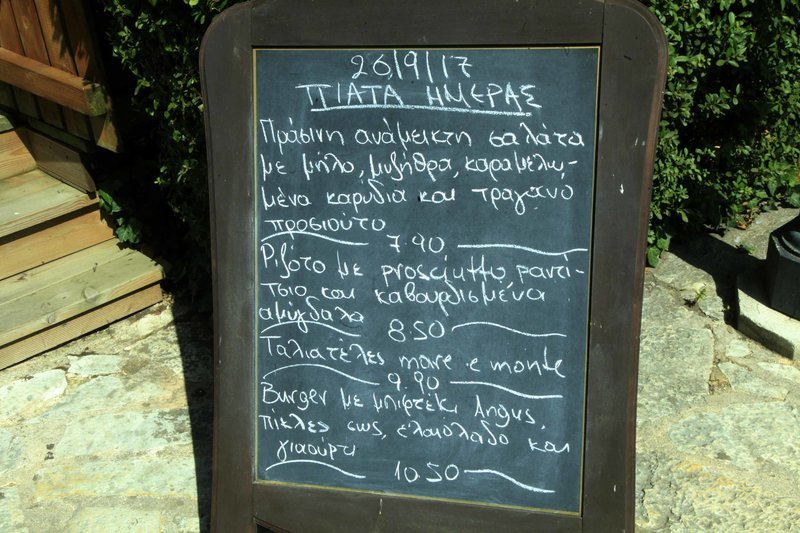 26/9/17
ΠΙΑΤΑ ΗΜΕΡΑΣ
Πράσινη ανάμεικτη σαλάτα
με μήλο, μυζήθρα, καραμελω-
μένα καρύδια και τραγανο
προσιούτο
7.90
Ριζότο με prosciutto ραντί-
τσιο και καβουρδισμένα
αμύγδαλα
8.50
Ταλιατέλες mare e monte
9.90
Burger με μπιφτέκι Angus,
πίκλες σως, ελαιολαδο και
γιαούρτι
10.50